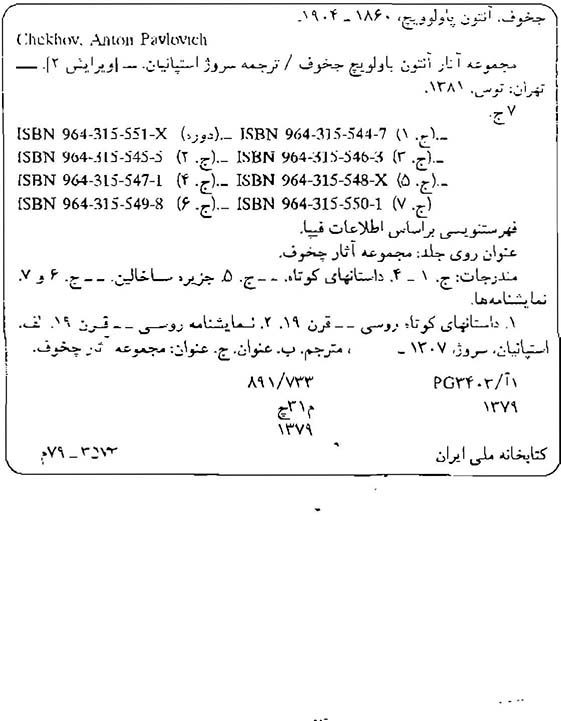 چخوف، آنتون پاولوویچ، ۱۸۶۰ ـ ۱۹۰۴.
Chekhov, Anton Pavlovich
مجموعه آثار آنتون پاولوویچ چخوف / ترجمه سروژ استپانیان. ـــ [ویرایش ۲]. ـــ
تهران: توس، ۱۳۸۱.
۷ ج.
ISBN 964-315-551-X (دوره) ــ ISBN 964-315-544-7 (ج. ۱) ــ
ISBN 964-315-545-5 (ج. ۲) ــ ISBN 964-315-546-3 (ج. ۳) ــ
ISBN 964-315-547-1 (ج. ۴) ــ ISBN 964-315-548-X (ج. ۵) ــ
ISBN 964-315-549-8 (ج. ۶) ــ ISBN 964-315-550-1 (ج. ۷)
فهرستنویسی براساس اطلاعات فیپا.
عنوان روی جلد: مجموعه آثار چخوف.
مندرجات: ج. ۱ ـ ۴. داستانهای کوتاه. ـ ـ ج. ۵. جزیره ساخالین. ـ ـ ج. ۶ و ۷.
نمایشنامه‌ها.
۱. داستانهای کوتاه روسی ـ ـ قرن ۱۹. ۲. نمایشنامه روسی ـ ـ قرن ۱۹. الف.
استپانیان، سروژ، ۱۳۰۷ ـ ، مترجم. ب. عنوان. ج. عنوان: مجموعه آثار چخوف.
۸۹۱/۷۳۳ PG۳۴۰۲/آ۱
م۳۱چ ۱۳۷۹
۱۳۷۹
کتابخانه ملی ایران ـ ۷۹م